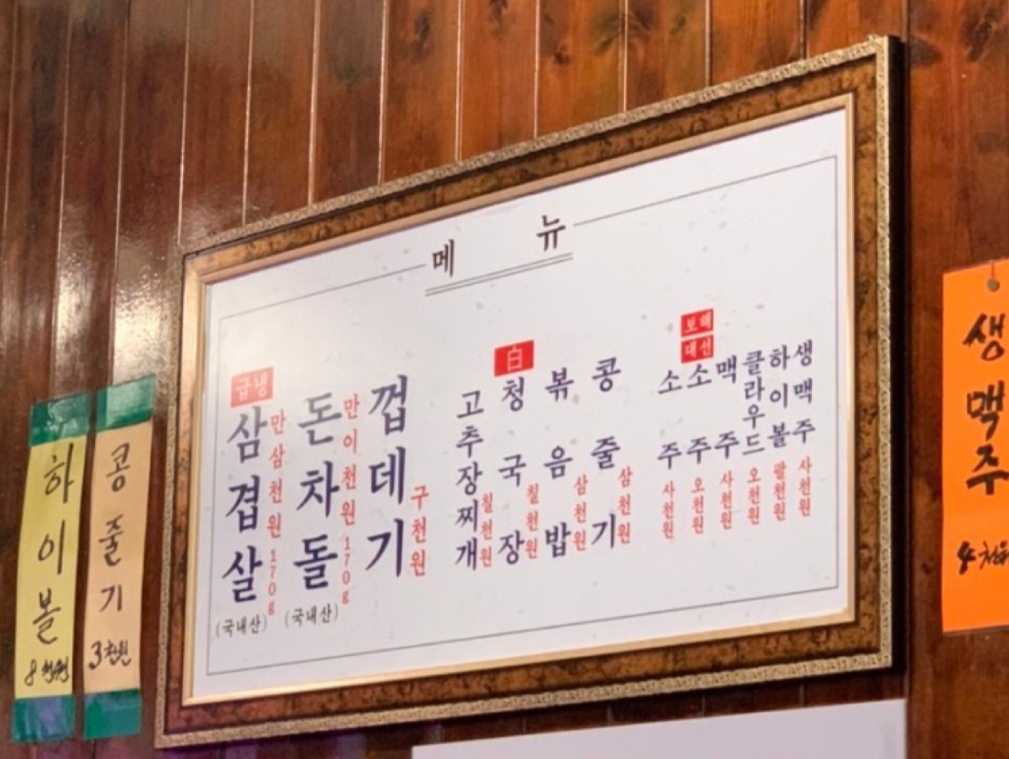 메뉴
급냉
삼겹살
만삼천원 170g
(국내산)
돈차돌
만이천원 170g
(국내산)
껍데기
구천원
고추장찌개
칠천원
白
청국장
칠천원
볶음밥
삼천원
콩줄기
삼천원
소주
사천원
보해
대선
소주
오천원
맥주
사천원
클라우드
오천원
하이볼
팔천원
생맥주
사천원
하이볼
8천원
콩줄기
3천원
생맥주
4천원